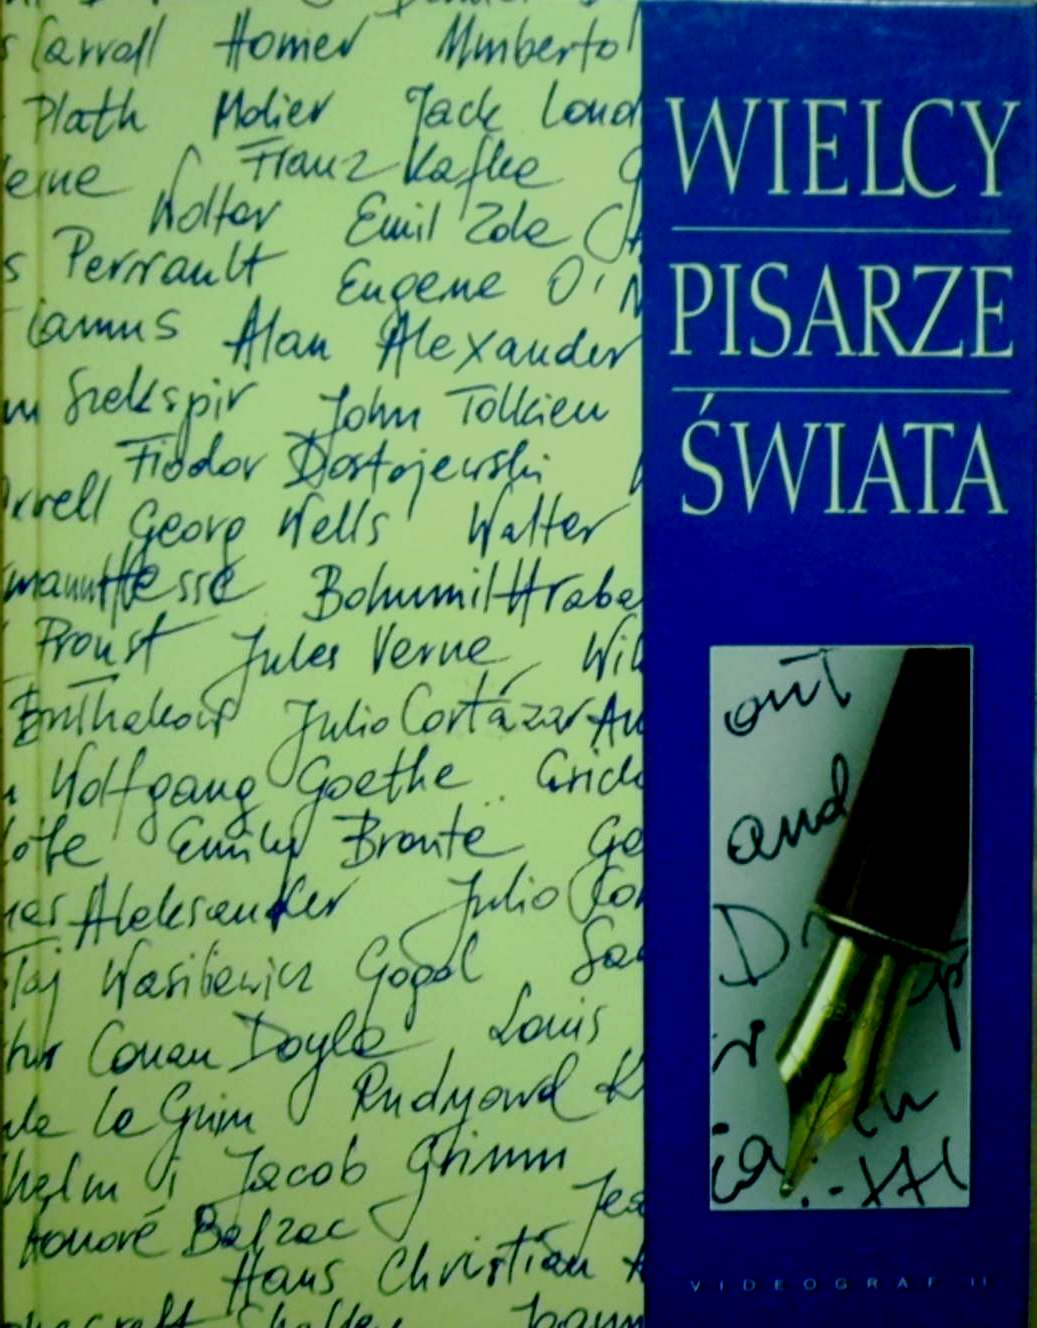 Carroll Homer Umberto
Plath Molier Jack Lond
eine Franz Kafka
Wolter Emil Zola
s Perrault Eugene O'N
Camus Alan Alexander
m Szekspir John Tolkien
Fiodor Dostojewski
rrell Georg Wells Walter
mann Hesse Bohumil Hraba
Proust Jules Verne Wil
Bułhakow Julio Cortázar An
Wolfgang Goethe Erich
Emily Brontë
Aleksander Julio Cor
łaj Wasiliewicz Gogol
hur Conan Doyle Louis
ula Le Guin Rudyard K
helm i Jacob Grimm
Honoré Balzac Jea
Hans Christian
WIELCY
PISARZE
ŚWIATA
out
and
D
VIDEOGRAF II